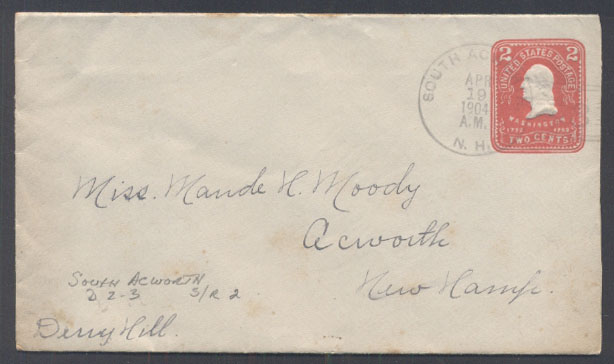 SOUTH AC
APR
19
1904
A.M.
N.H.
2 2
UNITED STATES POSTAGE
WASHINGTON
TWO CENTS
Miss. Maude H. Moody
Acworth
New Hamp.
SOUTH ACWORTH
D 2-3 S/R 2
Derry Hill.